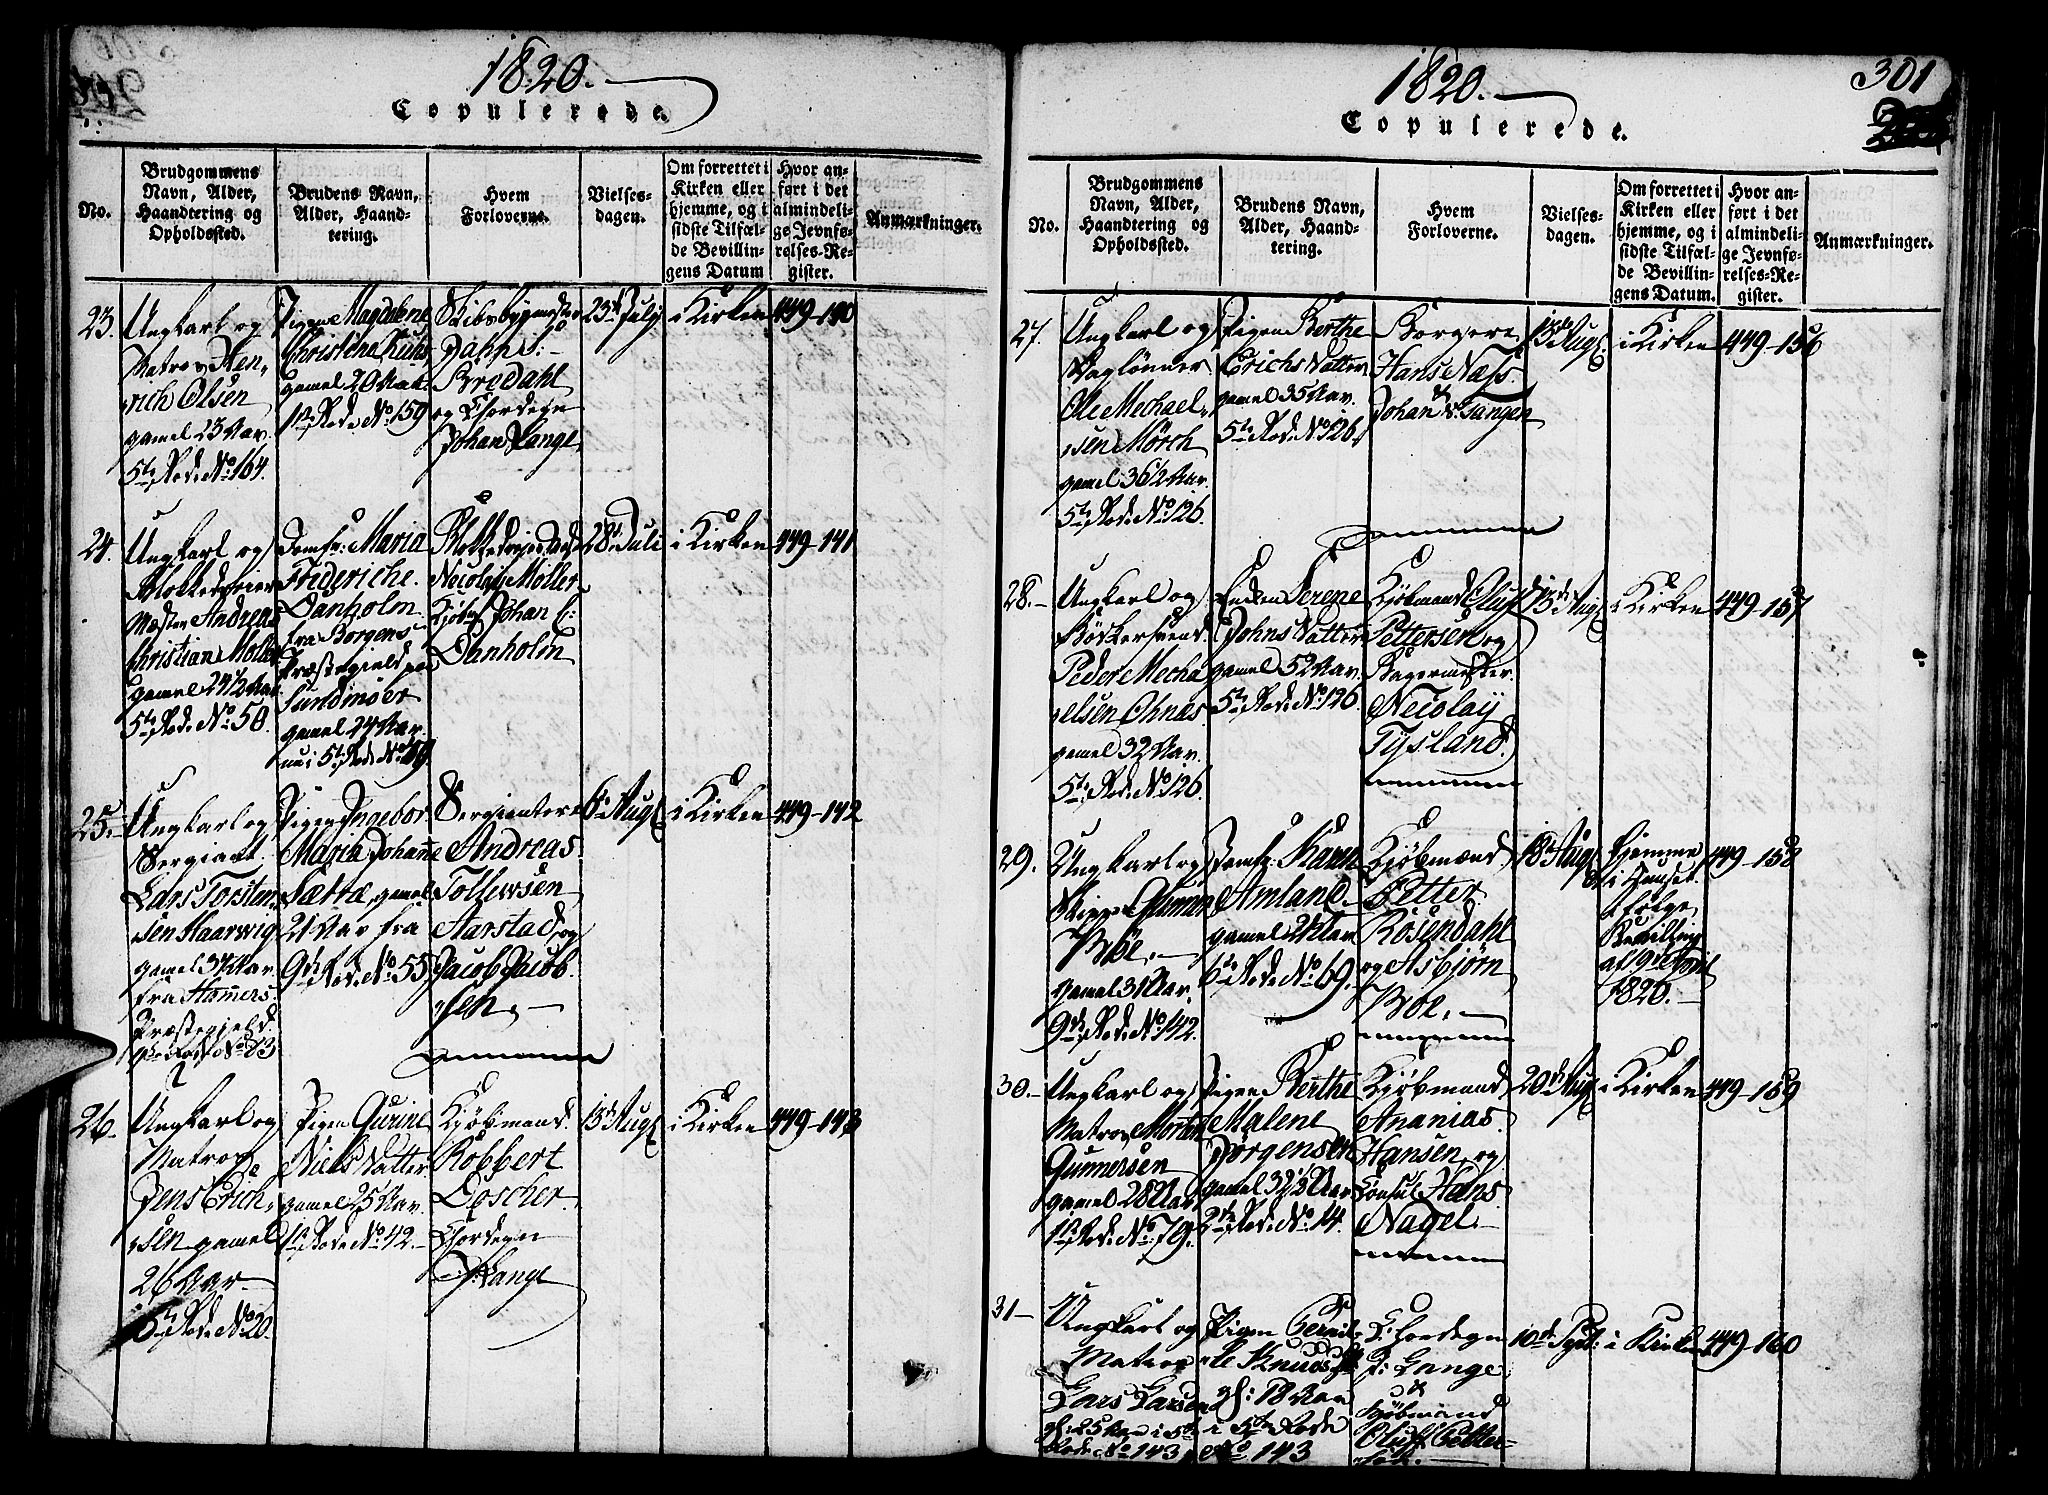 1820.
Copulerede.
No.
Brudgommens
Navn, Alder,
Haandtering og
Opholdssted.
Brudens Navn,
Alder, Haand-
tering.
Hvem
Forloverne.
Vielses-
dagen.
Om forrettet i
Kirken eller
hjemme, og i
sidste Tilfæl-
de Bevillin-
gens Datum
Hvor an-
ført i det
almindeli-
ge Jevnfø-
relses-Re-
gister.
Anmærkninger.
23.
Ungkarl og
Matros Hen-
rich Olsen
gamel 23 Aar.
5te Rode No 164.
Pigen Magdalene
Christine
gamel 20 Aar.
1ste Rode No 159
Skibsbygmester
Bredahl
og Chordegn
Johan Lange.
23de July
i Kirken
449-140
24.
Ungkarl og
Blokkedreier
Mester Andreas
Christian Møller
gamel 24 1/2 Aar
5te Rode No 50.
Jomfr: Maria
Frideriche
Danholm
fra Borgens
Præstegield paa
Sundmøer
gamel 24 Aar.
nu i 5te Rode No 49
Blokkedreier
Necolay Møller
Johan C:
Danholm
28de Juli
i Kirken
449-141
25.
Ungkarl og
Sergiant
Lars Torsten-
sen Haarwig
gamel 37 Aar.
fra Hammers
Præstegield.
Rode No 83
Pigen Ingebor
Maria Johanne
Sættræ, gamel
21 Aar fra
9de Rode No 55
Sergianterne
Andreas
Tollewsen
Aarstad, og
Jacob Jacob-
sen.
6te Aug
i Kirken
449-142
26.
Ungkarl og
Matros
Jens Erich-
sen gamel
26 Aar
5te Rode No 20.
Pigen Gurine
Niels Datter
gamel 25 Aar.
1ste Rode No 42.
Kjøbmand
Robbert
Doscher.
Chordegn
J. Lange
13de Aug
i Kirken
449-143
1820.
301
Copulerede.
No.
Brudgommens
Navn, Alder,
Haandtering og
Opholdssted.
Brudens Navn,
Alder, Haand-
tering.
Hvem
Forloverne.
Vielses-
dagen.
Om forrettet i
Kirken eller
hjemme, og i
sidste Tilfæl-
de Bevillin-
gens Datum.
Hvor an-
ført i det
almindeli-
ge Jevnfø-
relses-Re-
gister.
Anmærkninger.
27.
Ungkarl og
Daglønner
Ole Mechael-
sen Mörch
gamel 36 1/2 Aar.
5te Rode No 126.
Pigen Berthe
Erichs Datter
gamel 35 Aar.
5te Rode No 126.
Borgerne
Hans Næss.
Johan v. Tangen
13de Aug
i Kirken
449-156
28.
Ungkarl og
Bödkersvend
Peder Mecha
elsen Ohnæs
gamel 32 Aar.
5te Rode No 126.
Enken Serene
Johns Datter
gamel 52 Aar.
5te Rode No 126
Kjøbmand Oluf
Pettersen og
Bagermester
Necolay
Tysland.
13de Aug
i Kirken
449-157
29.
Ungkarl og
Skipper
Böe.
gamel 31 Aar.
9de Rode No 142.
Jomfr: Karen
Amland.
gamel 24 Aar
6te Rode No 69.
Kjøbmænd
Petter
Rosendahl
og Asbjørn
Böe.
18de Aug
Hjemme
i Huset
ifølge
Bevilling
af 19de April
1820.
449-158
30.
Ungkarl og
Matros Morten
Gunnersen
gamel 28 Aar
1ste Rode No 79.
Pigen Berthe
Malene
Jörgensen
gamel 32 1/2 Aar
2den Rode No 14.
Kjøbmand
Ananias
Hansen, og
Consul Hans
Nagel.
20de Aug
i Kirken
449-159
31
Ungkarl og
Matros
Lars Larsen
gl: 25 Aar i 5te
Rode No 143
Pigen Pernil-
le Knuds
gl: 18 Aar
i 5te Rode
No 143
Chordegn
J: Lange
&
Kjøbmand
Oluf Petter-
sen.
10de Sept:
i Kirken
449-160